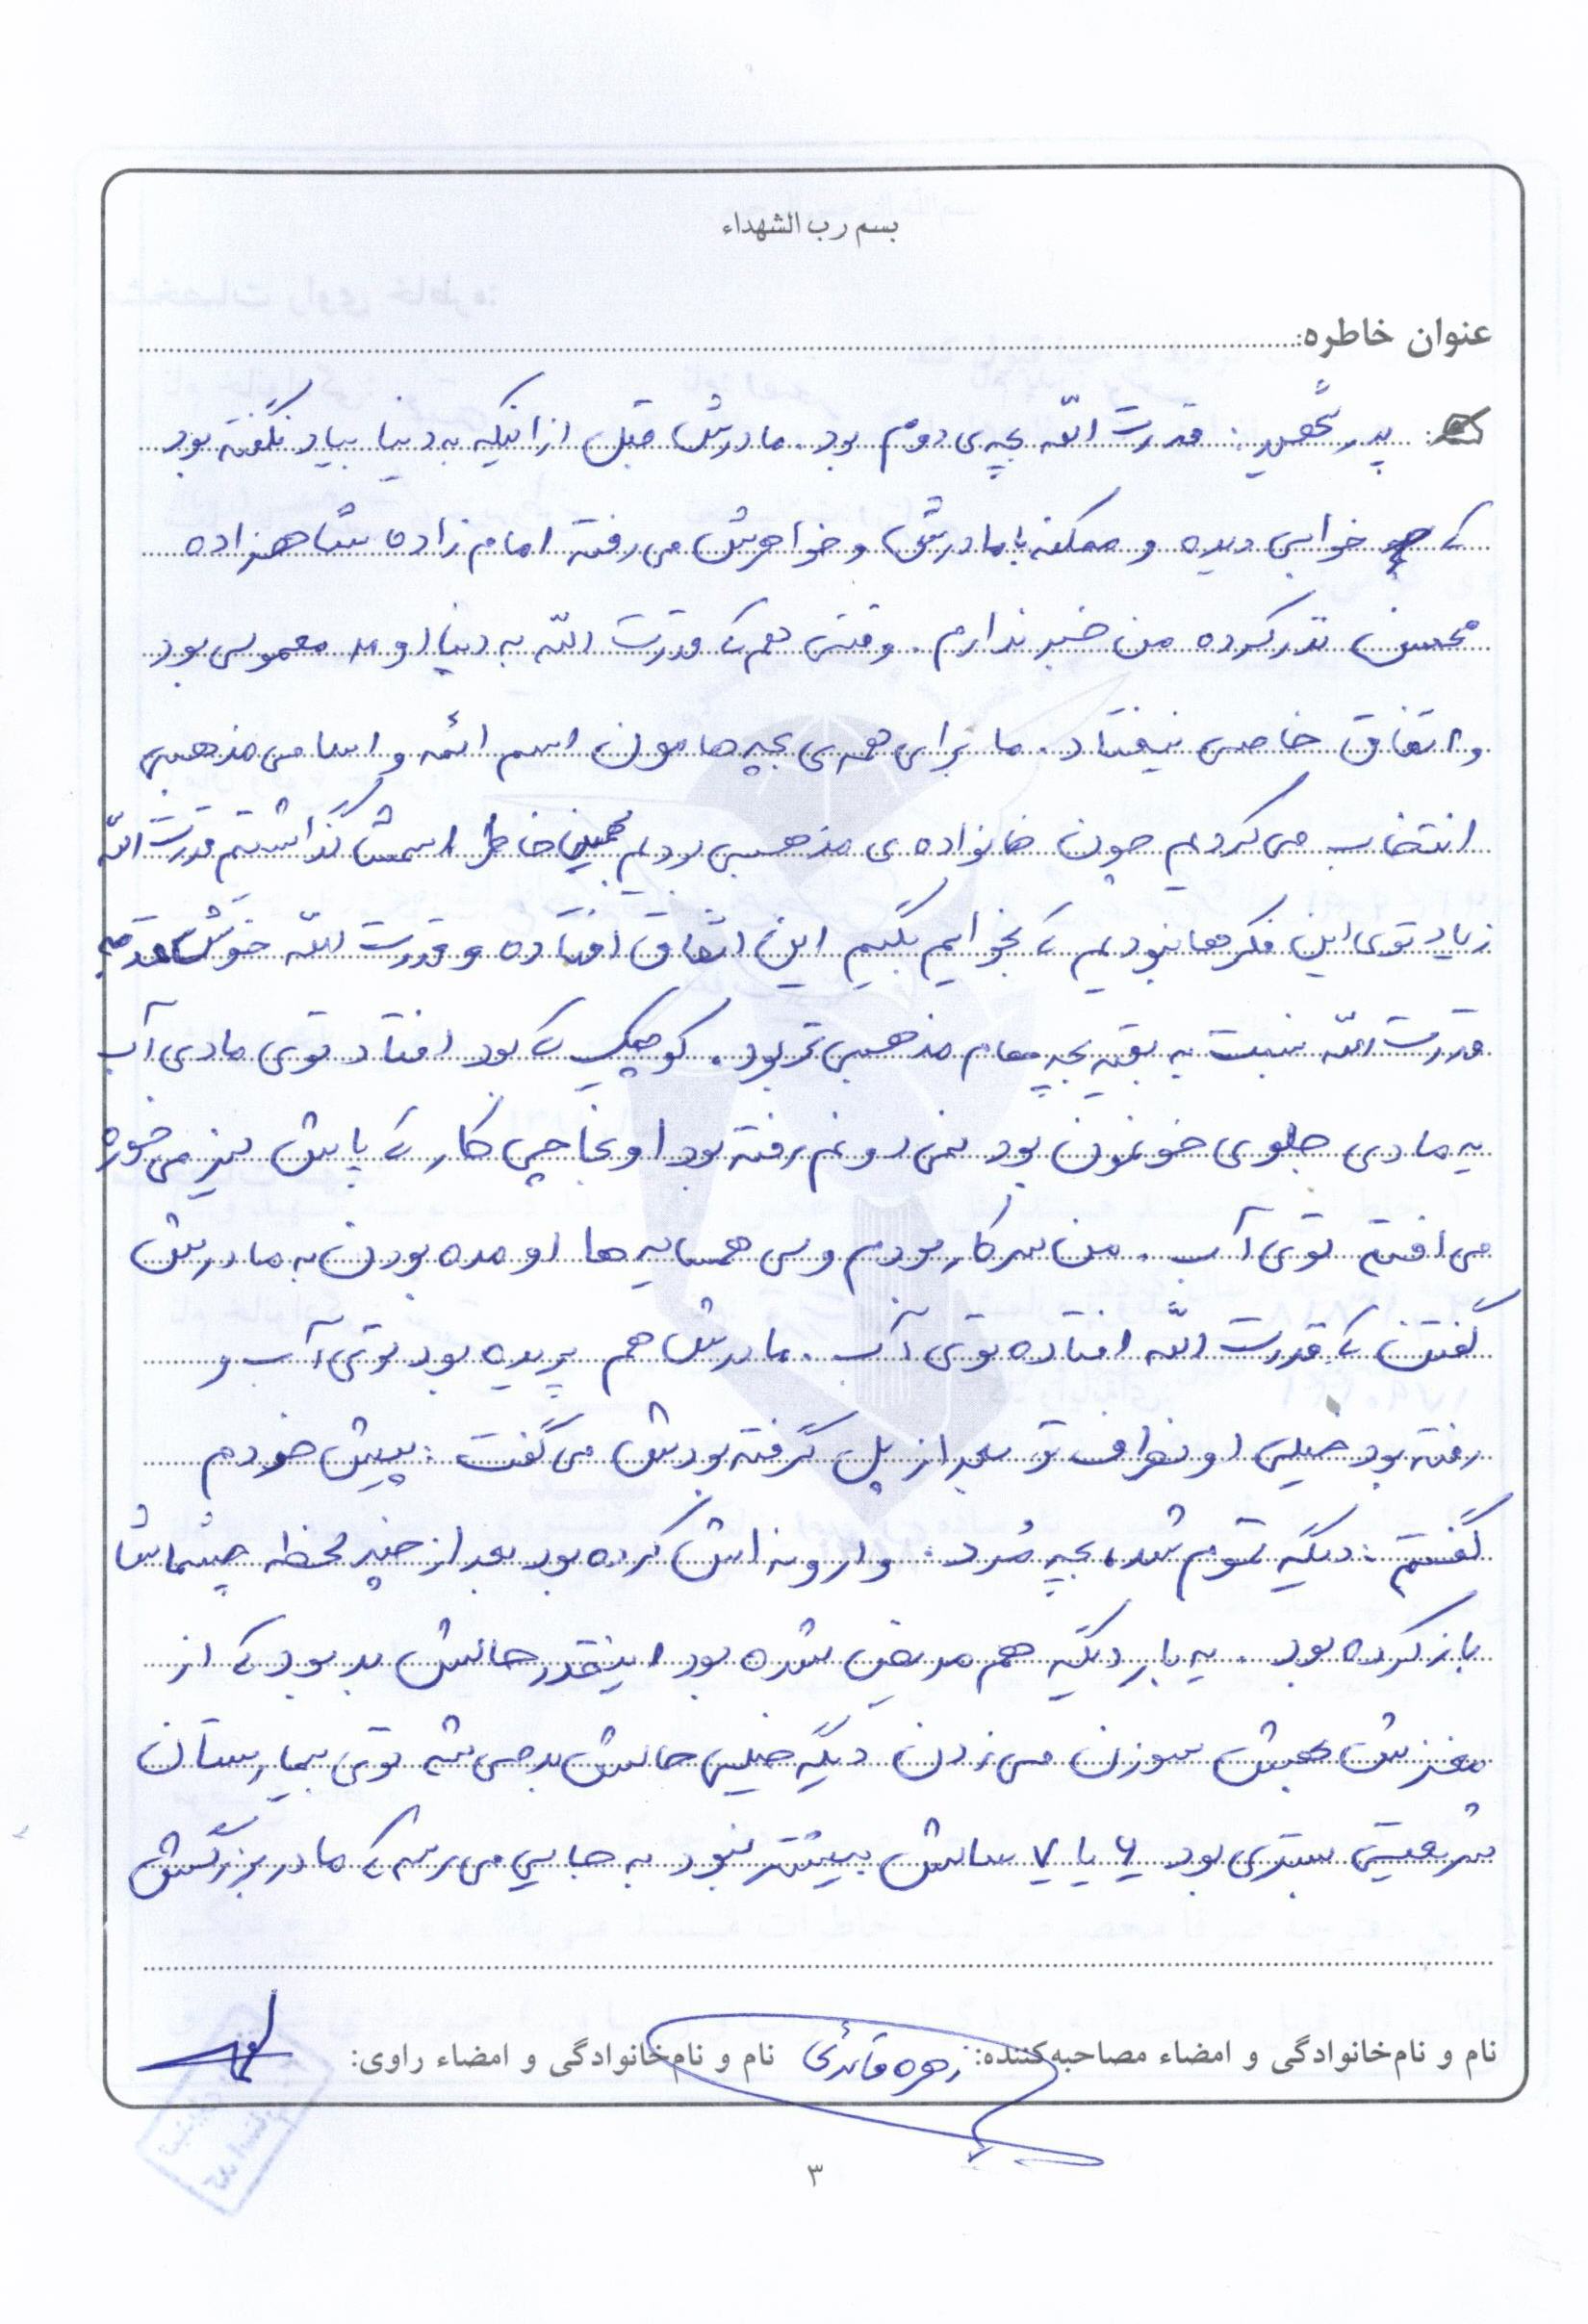 بسم رب الشهداء
عنوان خاطره:
پدر شهید: قدرت الله بچه‌ی دوم بود. مادرش قبل از اینکه به دنیا بیاد نگفته بود
که خوابی دیده و ممکنه با مادرش و خواهرش می رفته امام زاده شاهزاده
محسن نذر کرده من خبر ندارم. وقتی هم که قدرت الله به دنیا اومد معمولی بود
و اتفاق خاصی نیفتاد. ما برای همه‌ی بچه هامون اسم ائمه و اسامی مذهبی
انتخاب می کردیم چون خانواده ی مذهبی بودیم همین خاطر اسمش گذاشتیم قدرت الله
زیاد توی این فکرها نبودیم که بخوایم بگیم این اتفاق افتاده و قدرت الله خوش قدمه
قدرت الله نسبت به بقیه بچه هام مذهبی تر بود. کوچیک که بود افتاد توی مادی آب
یه مادی جلوی خونمون بود نمی دونم رفته بود اونجا چی کار که پاش لیز می خوره
می افته توی آب. من سر کار بودم ولی همسایه ها اومده بودن به مادرش
گفتن که قدرت الله افتاده توی آب. مادرش هم پریده بود توی آب و
رفته بود خیلی اونطرف تر بعد از پل گرفته بودش می گفت: پیش خودم
گفتم: دیگه تموم شد، بچه مُرد. وارونه اش کرده بود بعد از چند لحظه چشماشا
باز کرده بود. یه بار دیگه هم مریض شده بود اینقدر حالش بد بود که از
مغزش بهش سوزن می زدن دیگه خیلی حالش بد می شه توی بیمارستان
شریعتی بستری بود ۶ یا ۷ سالش بیشتر نبود به جایی می رسه که مادر بزرگش
نام و نام‌خانوادگی و امضاء مصاحبه‌کننده: زهره قائدی نام و نام‌خانوادگی و امضاء راوی:
۳